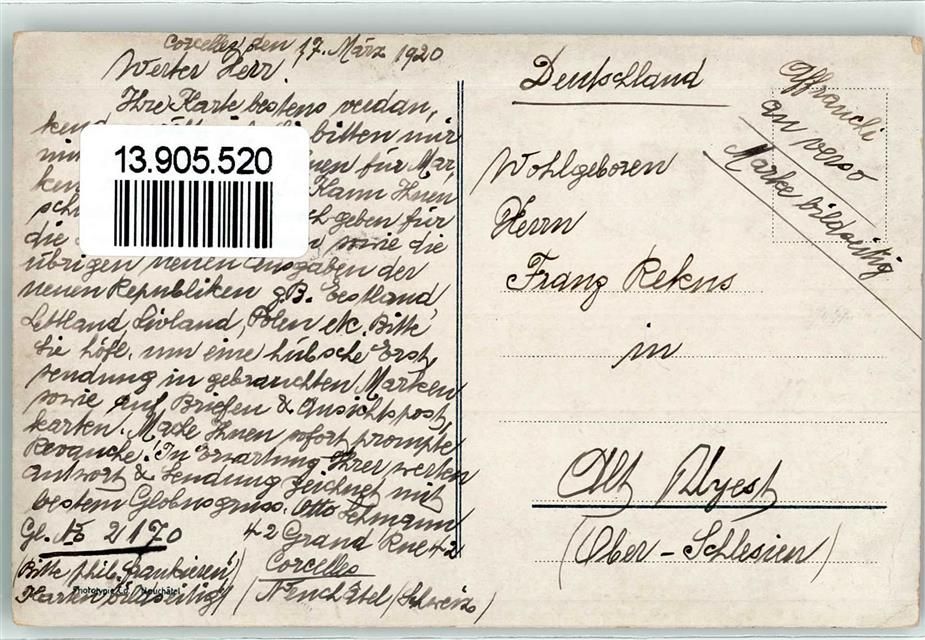 Corcelles, den 17. März 1920
Werter Herr.
Ihre Karte bestens verdan,
kend bitten mir
für Mar,
ken Kann Ihnen
geben für
die sowie die
übrigen neuen Ausgaben der
neuen Republiken z.B. Eestland,
Lettland, Livland, Polen etc. Bitte
Sie höfl. um eine hübsche Erst,
sendung in gebrauchten Marken
sowie auf Briefen & Ansichtspost,
karten. Mache Ihnen sofort prompte
Revanche! In Erwartung Ihrer werten
Antwort & Sendung zeichnet mit
bestem Globusgruss. Otto Lehmann
Gl. No 2170 42 Grand Rue 42
Corcelles
(Bitte phil. frankieren!)
Karten bildseitig! Neuchâtel (Schweiz)
Phototypie Neuchâtel
13.905.520
Deutschland
Affranchi
au verso
Marke bildseitig
Wohlgeboren
Herrn
Franz Rekus
in
Alt Ulyest
(Ober-Schlesien)